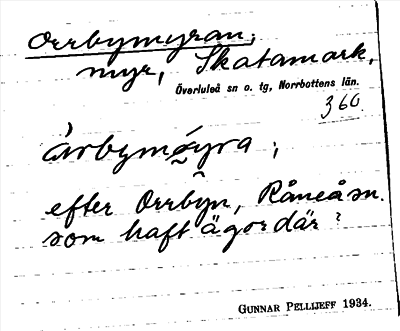 Orrbymyran,
myr, Skatamark,
Överluleå sn o. tg, Norrbottens län.
360.
årbymǿyra ;
efter Orrbyn, Råneå sn.
som haft ägor där?
GUNNAR PELLIJEFF 1934.